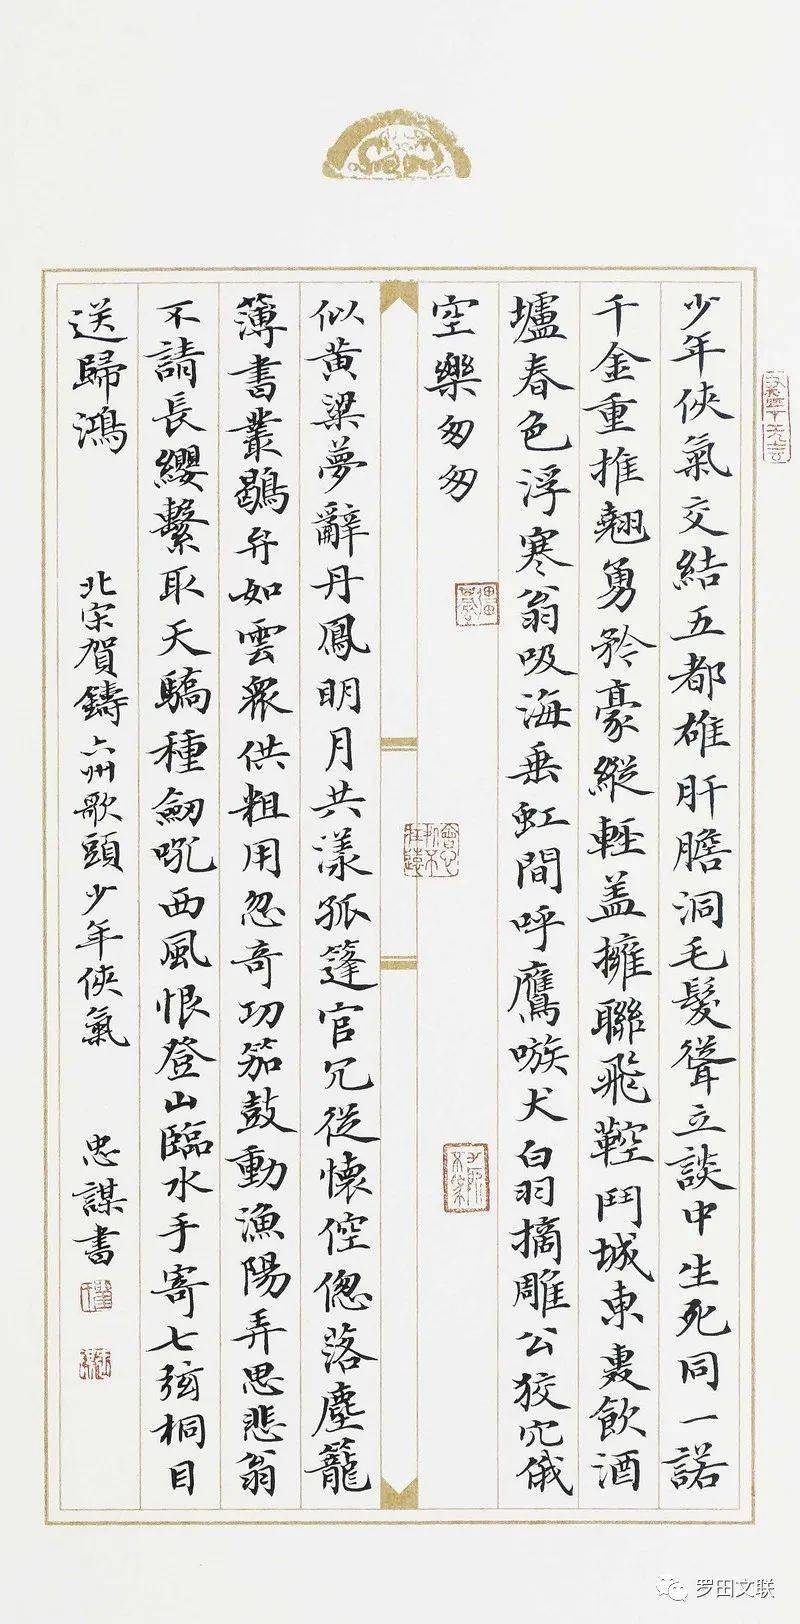 少年俠氣交結五都雄肝膽洞毛髮聳立談中生死同一諾
千金重推翹勇矜豪縱輕盖擁聯飛鞚鬥城東轟飲酒
壚春色浮寒翁吸海垂虹間呼鷹嗾犬白羽摘雕公狡穴俄
空樂匆匆
似黃粱夢辭丹鳳明月共漾孤篷官冗從懷倥偬落塵籠
簿書叢鶡弁如雲眾供粗用忽奇功笳鼓動漁陽弄思悲翁
不請長纓繫取天驕種劒吼西風恨登山臨水手寄七弦桐目
送歸鴻
北宋賀鑄六州歌頭少年俠氣
忠謀書
罗田文联